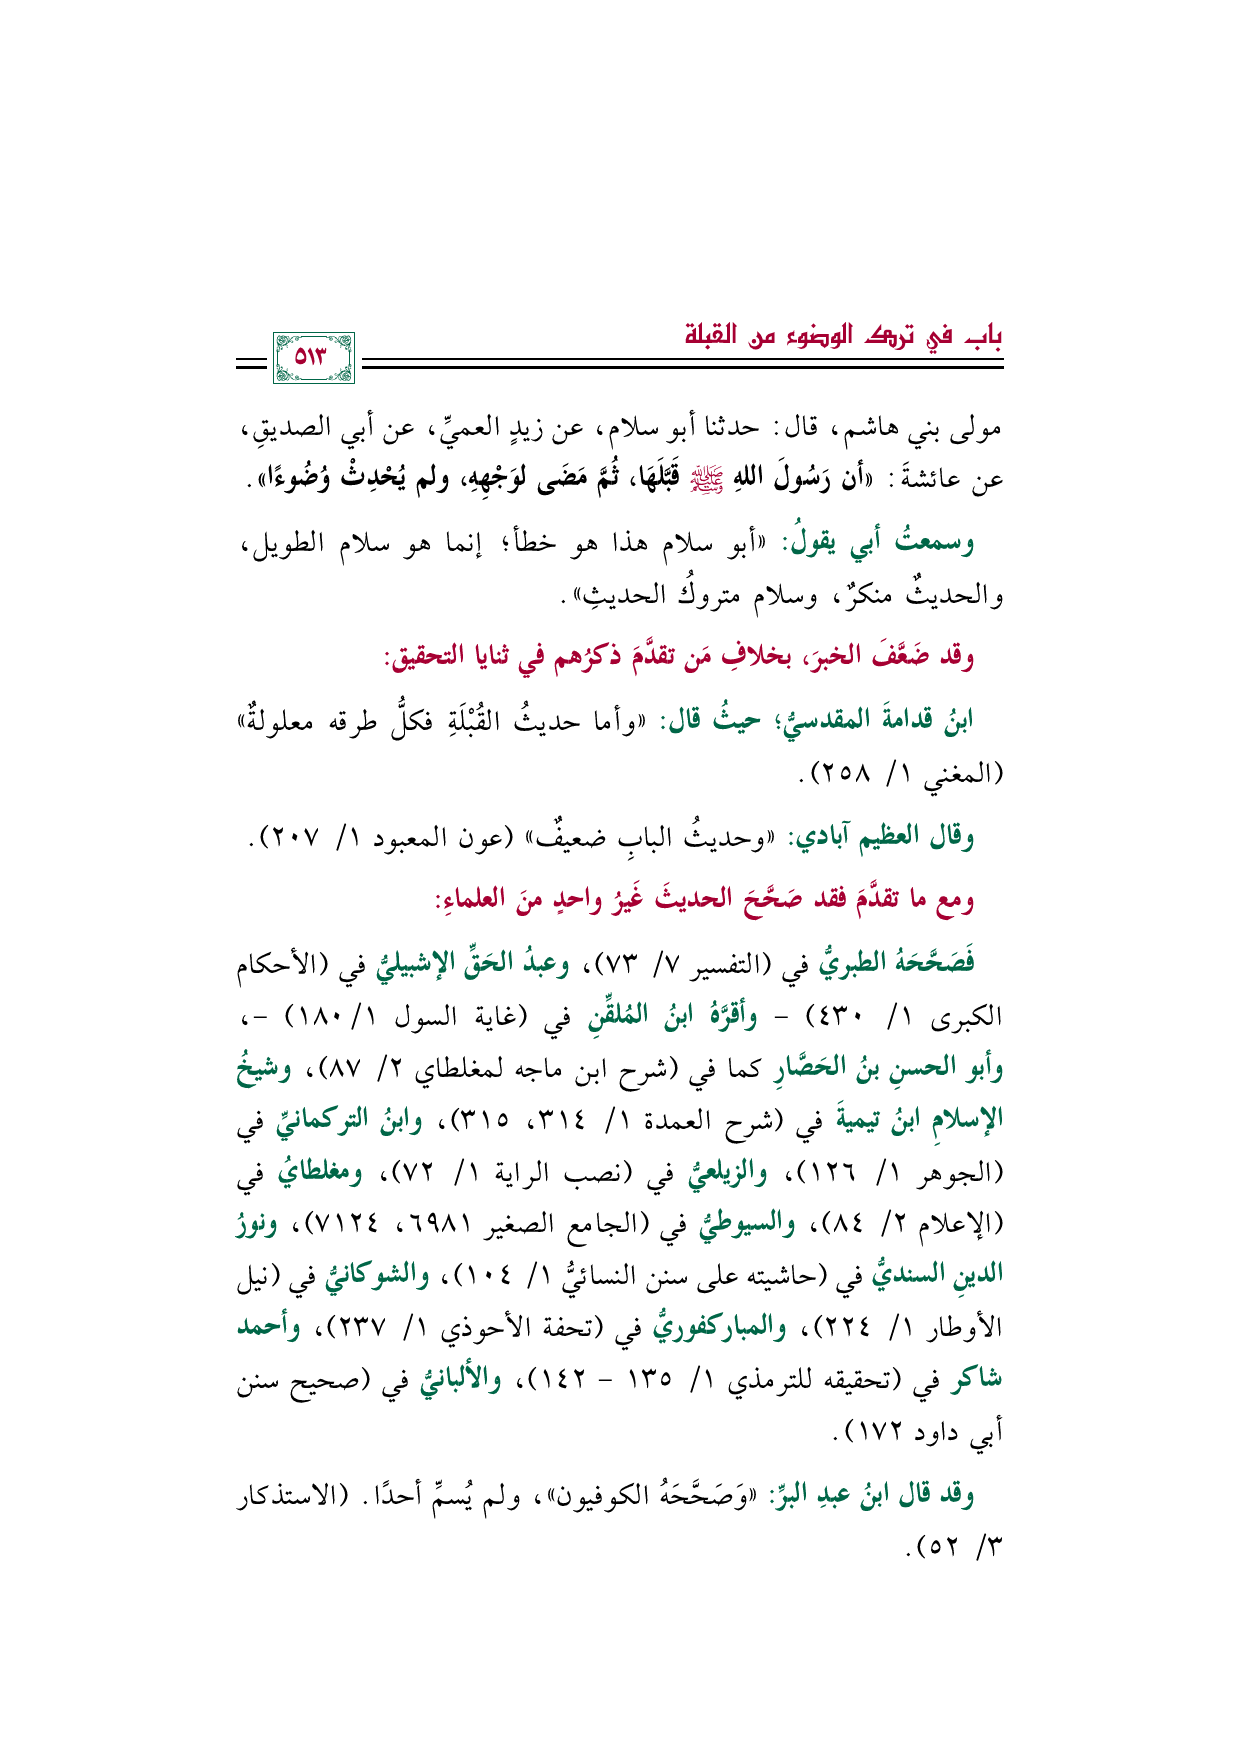 باب في ترك الوضوء من القبلة
٥١٣
مولى بني هاشم، قال: حدثنا أبو سلام، عن زيدٍ العميِّ، عن أبي الصديقِ،
عن عائشةَ: «أن رَسُولَ اللهِ ﷺ قَبَّلَهَا، ثُمَّ مَضَى لوَجْهِهِ، ولم يُحْدِثْ وُضُوءًا».
وسمعتُ أبي يقولُ: «أبو سلام هذا هو خطأ؛ إنما هو سلام الطويل،
والحديثُ منكرٌ، وسلام متروكُ الحديثِ».
وقد ضَعَّفَ الخبرَ، بخلافِ مَن تقدَّمَ ذكرُهم في ثنايا التحقيق:
ابنُ قدامةَ المقدسيُّ؛ حيثُ قال: «وأما حديثُ القُبْلَةِ فكلُّ طرقه معلولةٌ»
(المغني ١/ ٢٥٨).
وقال العظيم آبادي: «وحديثُ البابِ ضعيفٌ» (عون المعبود ١/ ٢٠٧).
ومع ما تقدَّمَ فقد صَحَّحَ الحديثَ غَيرُ واحدٍ منَ العلماءِ:
فَصَحَّحَهُ الطبريُّ في (التفسير ٧/ ٧٣)، وعبدُ الحَقِّ الإشبيليُّ في (الأحكام
الكبرى ١/ ٤٣٠) - وأقرَّهُ ابنُ المُلقِّنِ في (غاية السول ١/ ١٨٠) -،
وأبو الحسنِ بنُ الحَصَّارِ كما في (شرح ابن ماجه لمغلطاي ٢/ ٨٧)، وشيخُ
الإسلامِ ابنُ تيميةَ في (شرح العمدة ١/ ٣١٤، ٣١٥)، وابنُ التركمانيِّ في
(الجوهر ١/ ١٢٦)، والزيلعيُّ في (نصب الراية ١/ ٧٢)، ومغلطايُ في
(الإعلام ٢/ ٨٤)، والسيوطيُّ في (الجامع الصغير ٦٩٨١، ٧١٢٤)، ونورُ
الدينِ السنديُّ في (حاشيته على سنن النسائيُّ ١/ ١٠٤)، والشوكانيُّ في (نيل
الأوطار ١/ ٢٢٤)، والمباركفوريُّ في (تحفة الأحوذي ١/ ٢٣٧)، وأحمد
شاكر في (تحقيقه للترمذي ١/ ١٣٥ - ١٤٢)، والألبانيُّ في (صحيح سنن
أبي داود ١٧٢).
وقد قال ابنُ عبدِ البرِّ: «وَصَحَّحَهُ الكوفيون»، ولم يُسمِّ أحدًا. (الاستذكار
٣/ ٥٢).